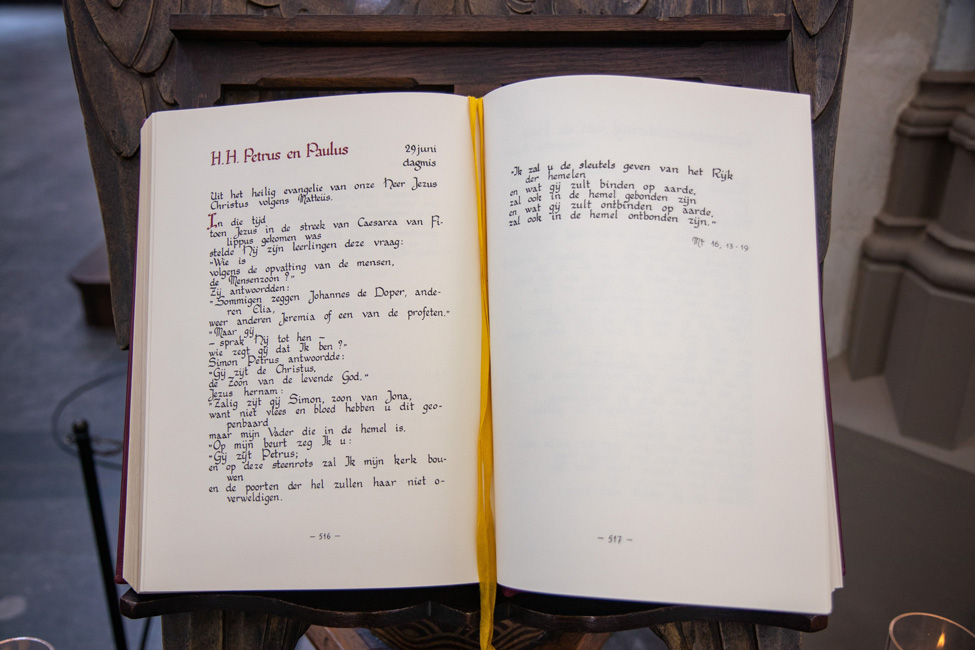 H.H. Petrus en Paulus
29 juni
dagmis
Uit het heilig evangelie van onze Heer Jezus
Christus volgens Matteüs.
In die tijd
toen Jezus in de streek van Caesarea van Fi-
lippus gekomen was
stelde Hij zijn leerlingen deze vraag:
"Wie is
volgens de opvatting van de mensen,
de Mensenzoon?"
Zij antwoordden:
"Sommigen zeggen Johannes de Doper, ande-
ren Elia,
weer anderen Jeremia of een van de profeten."
"Maar gij
– sprak Hij tot hen –
wie zegt gij dat Ik ben?"
Simon Petrus antwoordde:
"Gij zijt de Christus,
de Zoon van de levende God."
Jezus hernam:
"Zalig zijt gij Simon, zoon van Jona,
want niet vlees en bloed hebben u dit geo-
penbaard
maar mijn Vader die in de hemel is.
"Op mijn beurt zeg Ik u:
"Gij zijt Petrus;
en op deze steenrots zal Ik mijn kerk bou-
wen
en de poorten der hel zullen haar niet o-
verweldigen.
– 516 –
"Ik zal u de sleutels geven van het Rijk
der hemelen
en wat gij zult binden op aarde,
zal ook in de hemel gebonden zijn
en wat gij zult ontbinden op aarde,
zal ook in de hemel ontbonden zijn."
Mt 16, 13-19
– 517 –